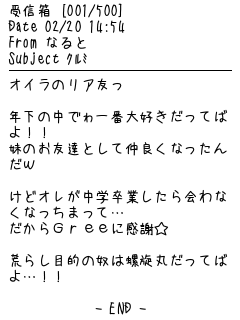 受信箱 [001/500]
Date 02/20 14:54
From なると
Subject ｸﾙﾐ
オイラのリア友っ
年下の中でゎ一番大好きだってば
よ！！
妹のお友達として仲良くなったん
だW
けどオレが中学卒業したら会わな
くなっちまって…
だからＧｒｅｅに感謝☆
荒らし目的の奴は螺旋丸だってば
よ…！！
- END -